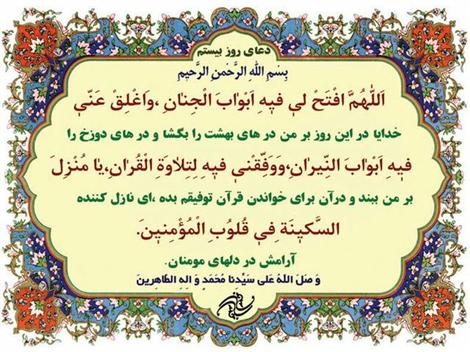 دعای روز بیستم
بِسْمِ اللهِ الرَّحْمنِ الرَّحیمِ
اَللّهُمَّ افْتَحْ لی فیهِ اَبْوابَ الْجِنانِ ،وَاَغْلِقْ عَنّی
خدایا در این روز بر من در های بهشت را بگشا و در های دوزخ را
فیهِ اَبْوابَ النّیرانِ،وَوَفّقْنی فیهِ لِتِلاوَةِ الْقُرانِ،یا مُنْزِلَ
بر من ببند و درآن برای خواندن قرآن توفیقم بده ،ای نازل کننده
السَّکینَةِ فی قُلُوبِ الْمُؤْمِنینَ.
آرامش در دلهای مومنان.
وَ صَلَ اللهُ عَلی سَیِّدِنا مُحَمَدٍ وَ الِهِ الطّاهِرینَ